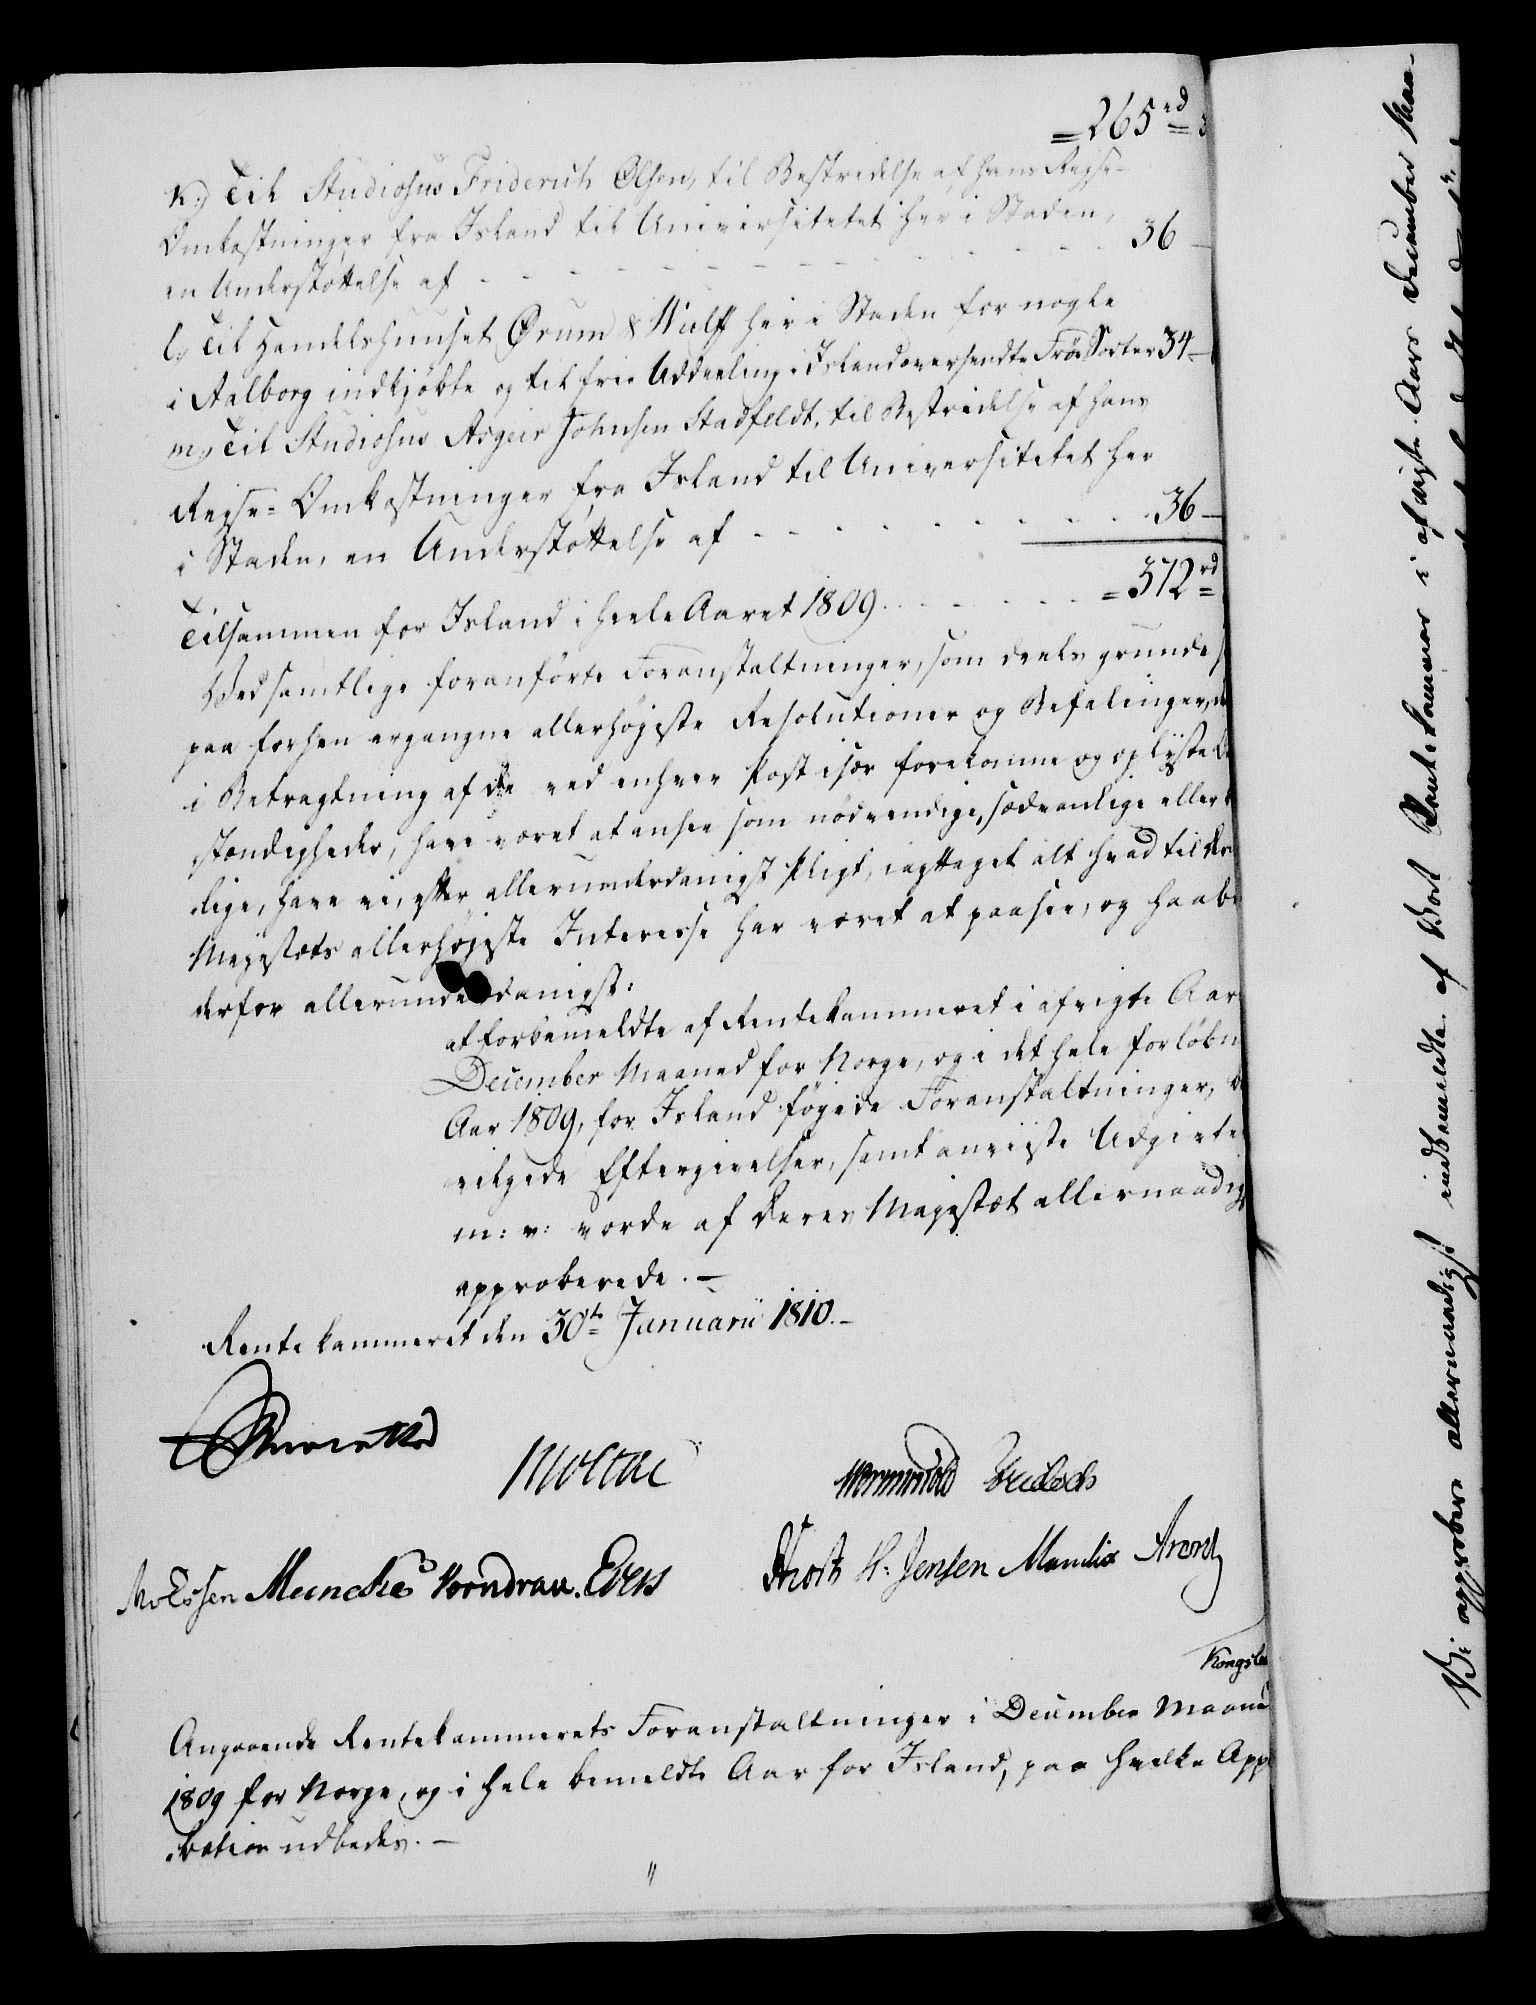 =265 rd=
k.) Til Studiosus Friderich Olsen, til Bestridelse af hans Rejse-
Omkostninger fra Island til Universitetet her i Staden,
en Understøttelse af - - - - - - - - - - 36 -
l.) Til Handelshuuset Ørum & Wulff her i Staden for nogle
i Aalborg indkjøbte og til frie Uddeeling i Island oversendte Frøe Sorter 34 -
m.) Til Studiosus Asgeir Johnsen Stadfeldt, til Bestridelse af hans
Rejse-Omkostninger fra Island til Universitetet her
i Staden, en Understøttelse af - - - - - - - - 36 -
Tilsammen for Island i heele Aaret 1809 - - - - - =372 rd=
Ved samtlige foranførte Foranstaltninger, som deels grunde s
paa forhen ergangne allerhøjeste Resolutioner og Befalinger, de
i Betragtning af de ved enhver Post især forekomne og oplyste
stændigheder, have været at ansee som nødvendige, sædvanlige eller
lige, have vi, efter allerunderdanigst Pligt, iagttaget alt hvad til Der
Majestæts allerhøjeste Interesse har været at paasee, og haabe
derfor allerunderdanigst:
at forbemeldte af Rentekammeret i afvigte Aar
December Maaned for Norge, og i det hele forløbn
Aar 1809, for Island føjede Foranstaltninger,
vilgede Eftergivelser, samt anviiste Udgivte
m: v: vorde af Deres Majestæt allernaadig
approberede. -
Rentekammeret den 30te Januarii 1810. -
Moltke
Wormskiold
Meincke Korndrau. Evers
Knoth H. Jensen Manthey Arentz
Angaaende Rentekammerets Foranstaltninger i December Maane
1809 for Norge, og i hele bemeldte Aar for Island, paa hvilke App
bation udbedes. -
"
Vi approbere allernaadigst indbemeldte af Vort Rentekammer i afvigte Aars December Maa-